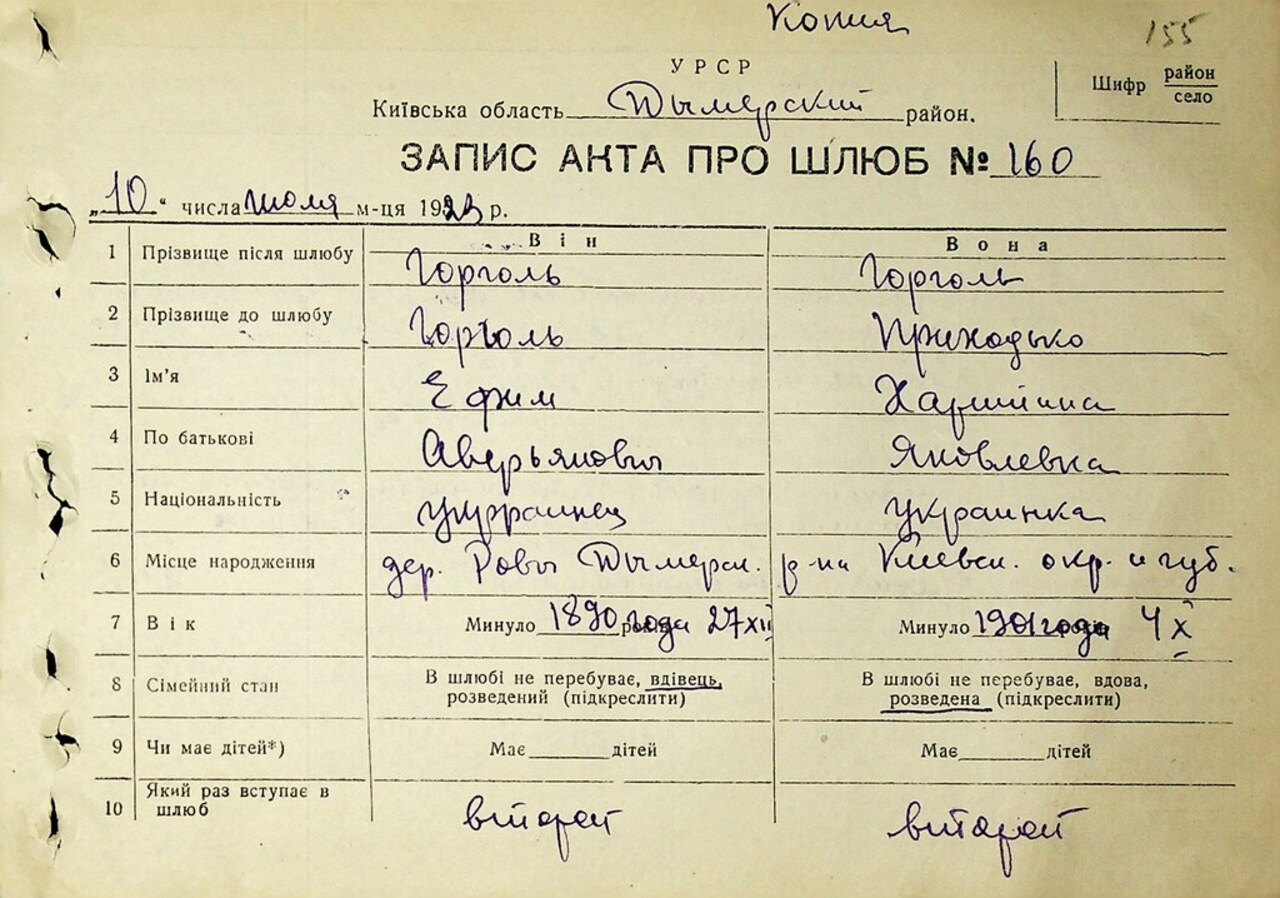 Копия
155
УРСР
Київська область Дымерский район.
Шифр район село
ЗАПИС АКТА ПРО ШЛЮБ № 160
„10“ числа июля м-ця 1923 р.
Він Вона
1 Прізвище після шлюбу Горголь Горголь
2 Прізвище до шлюбу Горголь Приходько
3 Ім’я Ефим
4 По батькові Аверьянович Яковлевна
5 Національність украинец украинка
6 Місце народження дер. Ровы Дымерск. р-на Киевск. окр. и губ.
7 Вік Минуло 1890 года 27 XII Минуло 1901 года 4 X
8 Сімейний стан В шлюбі не перебуває, вдівець, В шлюбі не перебуває, вдова,
розведений (підкреслити) розведена (підкреслити)
9 Чи має дітей*) Має дітей Має дітей
10 Який раз вступає в шлюб второй второй